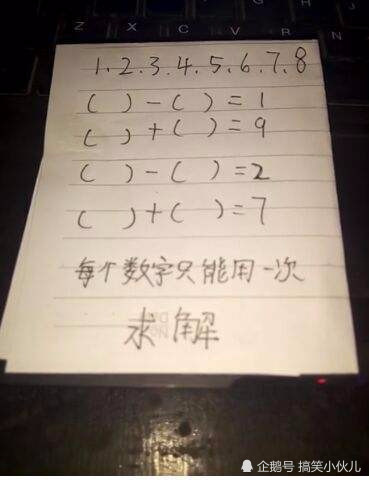 Z X C V B
1.2.3.4.5.6.7.8
( ) - ( ) = 1
( ) + ( ) = 9
( ) - ( ) = 2
( ) + ( ) = 7
每个数字只能用一次
求解
企鹅号 搞笑小伙儿